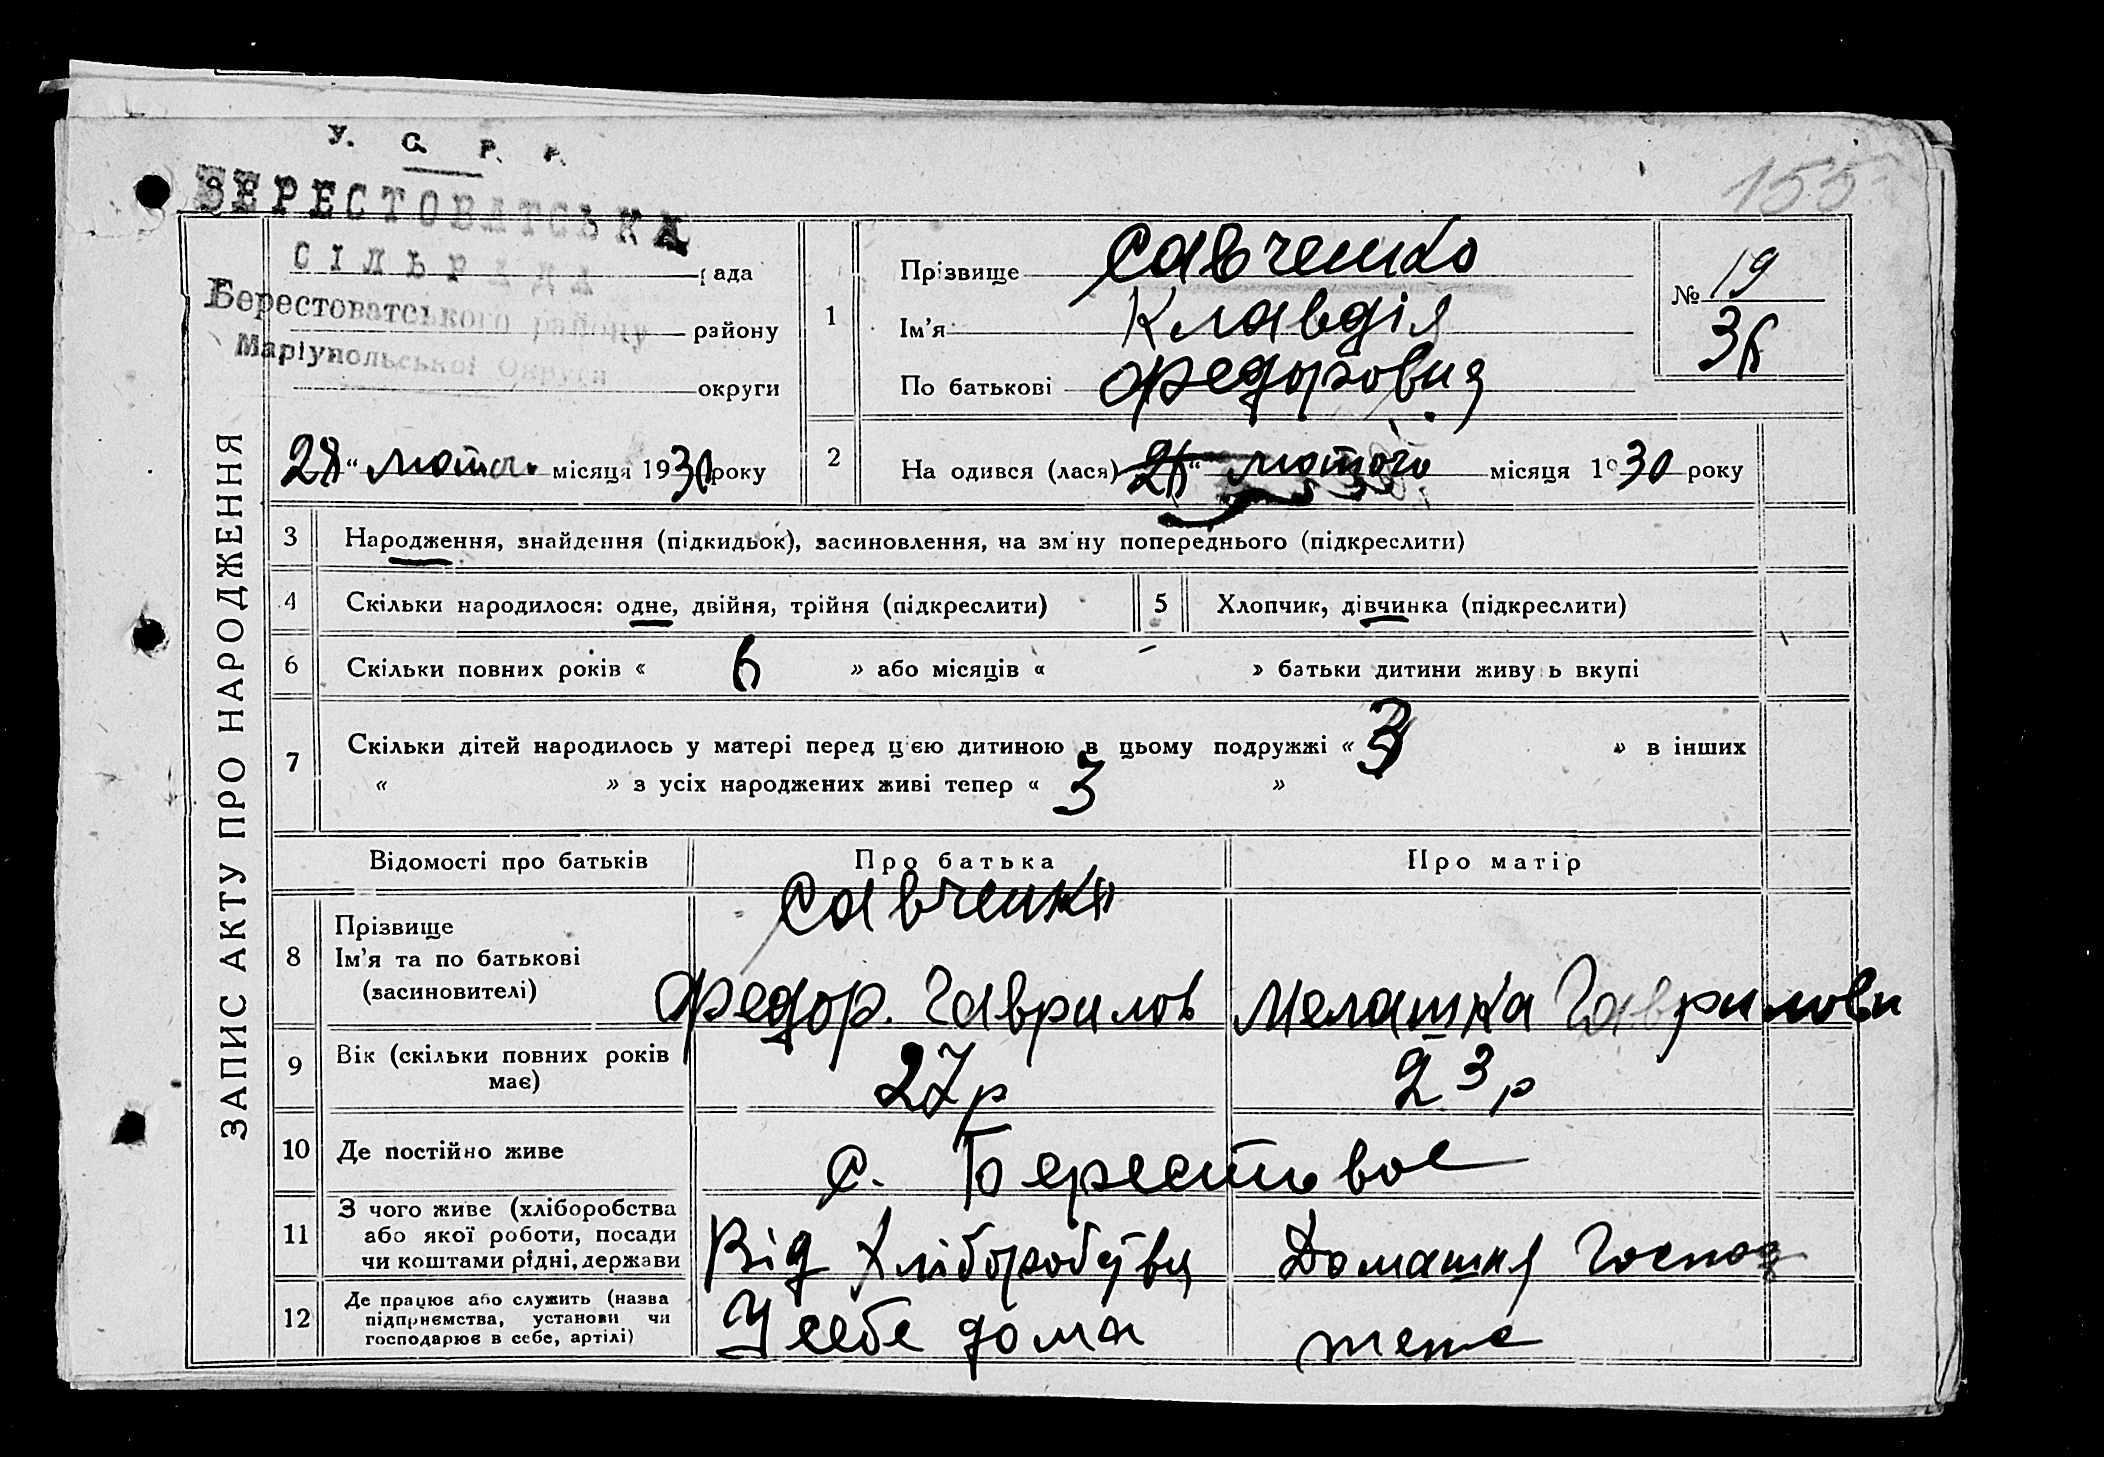 155
У. С. Р. Р.
БЕРЕСТОВАТСЬКА
СІЛЬРАДА рада
Берестоватського району району
Маріупольської Округи
округи
„ лютого місяця 1930 року
ЗАПИС АКТУ ПРО НАРОДЖЕННЯ
1 Прізвище Савченко
Ім'я Клавдія
По батькові Федоровна
№ 19
2 На одився (лася) „ лютого місяця 1930 року
3 Народження, знайдення (підкидьок), засиновлення, на зміну попереднього (підкреслити)
4 Скільки народилося: одне, двійня, трійня (підкреслити)
5 Хлопчик, дівчинка (підкреслити)
6 Скільки повних років « 6 » або місяців « – » батьки дитини живуть вкупі
7 Скільки дітей народилось у матері перед цією дитиною в цьому подружжі « 3 » в інших
« » з усіх народжених живі тепер « 3 »
Відомості про батьків Про батька Про матір
8 Прізвище
Ім'я та по батькові
(засиновителі)
Савченко
Федор. Гаврилов Мелашка Гавриловн
9 Вік (скільки повних років
має)
27 р 23 р
10 Де постійно живе с. Берестовое
11 З чого живе (хліборобства
або якої роботи, посади
чи коштами рідні, держави
Від Хліборобства Домашня Господ
12 Де працює або служить (назва
підприємства, установи чи
господарює в себе, артілі)
У себе дома теж